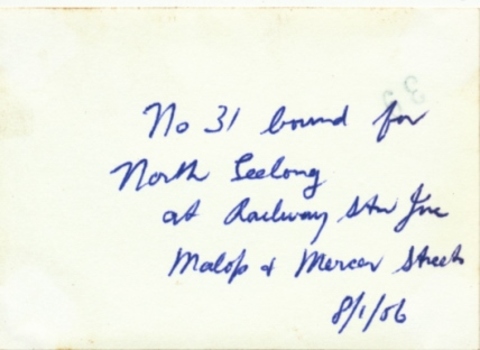 No 31 bound for
North Geelong
at Railway Stn Jnc
Malop & Mercer Streets
8/1/56